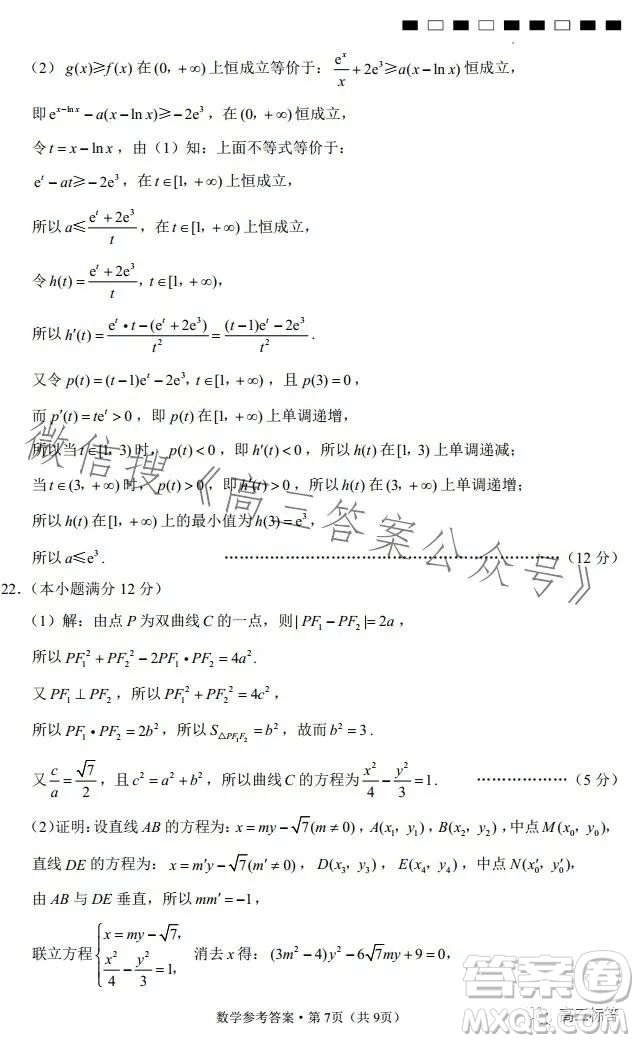 （2）g(x)≥f(x) 在(0，+∞) 上恒成立等价于：e^x/x + 2e³≥a(x−ln x) 恒成立，
即 e^(x−ln x) − a(x−ln x)≥−2e³，在 (0，+∞) 恒成立，
令 t = x−ln x，由（1）知：上面不等式等价于：
e^t − at≥−2e³，在 t∈[1，+∞) 上恒成立，
所以 a≤(e^t + 2e³)/t，在 t∈[1，+∞) 上恒成立，
令 h(t) = (e^t + 2e³)/t，t∈[1，+∞)，
所以 h′(t) = (e^t•t−(e^t + 2e³))/t² = ((t−1)e^t − 2e³)/t².
又令 p(t) = (t−1)e^t − 2e³，t∈[1，+∞)，且 p(3) = 0，
而 p′(t) = te^t > 0，即 p(t) 在[1，+∞) 上单调递增，
所以当 t∈[1，3) 时，p(t) < 0，即 h′(t) < 0，所以 h(t) 在[1，3) 上单调递减；
当 t∈(3，+∞) 时，p(t) > 0，即 h′(t) > 0，所以 h(t) 在 (3，+∞) 上单调递增；
所以 h(t) 在[1，+∞) 上的最小值为 h(3) = e³，
所以 a≤e³. ……………………………………………………（12 分）
22．（本小题满分 12 分）
（1）解：由点 P 为双曲线 C 的一点，则 |PF₁ − PF₂| = 2a，
所以 PF₁² + PF₂² − 2PF₁•PF₂ = 4a².
又 PF₁ ⊥ PF₂，所以 PF₁² + PF₂² = 4c²，
所以 PF₁•PF₂ = 2b²，所以 S△PF₁F₂ = b²，故而 b² = 3.
又 c/a = √7/2，且 c² = a² + b²，所以曲线 C 的方程为 x²/4 − y²/3 = 1. ………………（5 分）
（2）证明：设直线 AB 的方程为：x = my − √7(m ≠ 0)，A(x₁，y₁)，B(x₂，y₂)，中点 M(x₀，y₀)，
直线 DE 的方程为：x = m′y − √7(m′ ≠ 0)，D(x₃，y₃)，E(x₄，y₄)，中点 N(x₀′，y₀′)，
由 AB 与 DE 垂直，所以 mm′ = −1，
联立方程{x = my − √7，x²/4 − y²/3 = 1，消去 x 得：(3m² − 4)y² − 6√7my + 9 = 0，
数学参考答案·第 7页（共 9页）
微信搜《高三答案公众号》
答案卷
高三标答